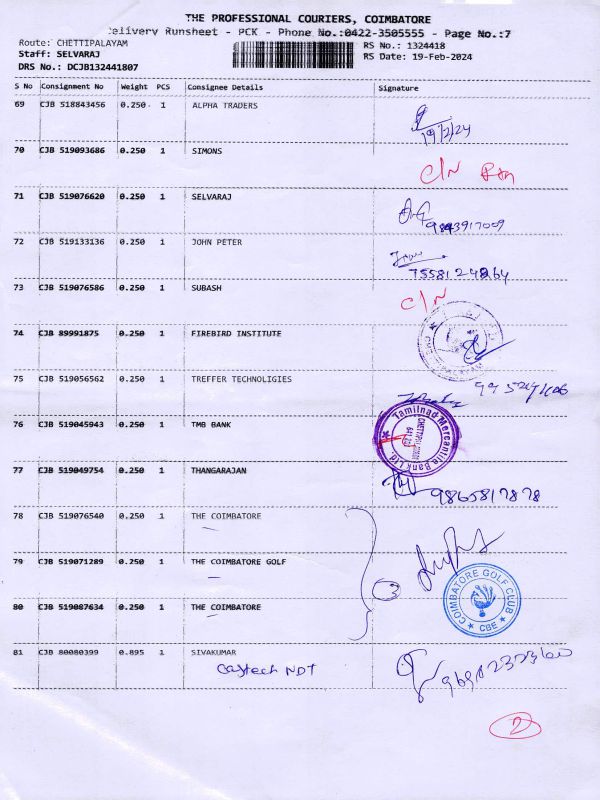 THE PROFESSIONAL COURIERS, COIMBATORE
Delivery Runsheet - PCK - Phone No.:0422-3505555 - Page No.:7
Route: CHETTIPALAYAM
RS No.: 1324418
Staff: SELVARAJ
RS Date: 19-Feb-2024
DRS No.: DCJB132441807
S No Consignment No Weight PCS Consignee Details Signature
69 CJB 518843456 0.250 1 ALPHA TRADERS
19/2/24
70 CJB 519093686 0.250 1 SIMONS
C/N
71 CJB 519076620 0.250 1 SELVARAJ
9843917009
72 CJB 519133136 0.250 1 JOHN PETER
73 CJB 519076586 0.250 1 SUBASH
C/N
74 CJB 89991875 0.250 1 FIREBIRD INSTITUTE
75 CJB 519056562 0.250 1 TREFFER TECHNOLIGIES
76 CJB 519045943 0.250 1 TMB BANK
Tamilnad Mercantile Bank Ltd.
77 CJB 519049754 0.250 1 THANGARAJAN
9865817878
78 CJB 519076540 0.250 1 THE COIMBATORE
79 CJB 519071289 0.250 1 THE COIMBATORE GOLF
3
COIMBATORE GOLF CLUB
CBE
80 CJB 519087634 0.250 1 THE COIMBATORE
81 CJB 80080399 0.895 1 SIVAKUMAR
Castech NDT
2